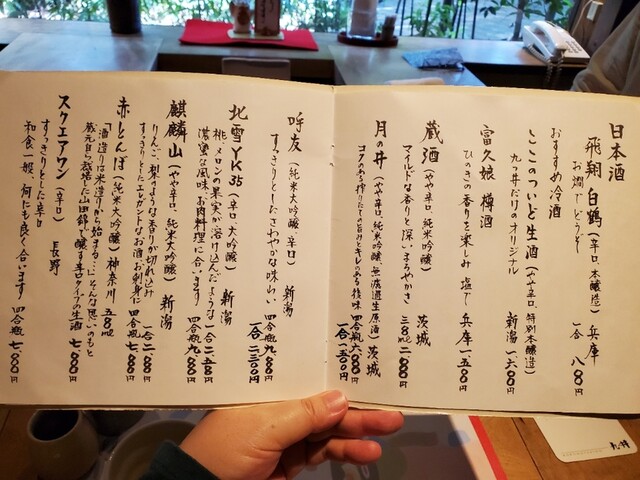 日本酒
飛翔 白鶴（辛口、本醸造） 兵庫
お燗でどうぞ 一合 八〇〇円
おすすめ冷酒
ここのついど生酒（やや辛口、特別本醸造）
九つ井だけのオリジナル 新潟 一六〇〇円
富久娘 樽酒
ひのきの香りを楽しみ 塩で 兵庫 一五〇〇円
蔵酒（やや辛口、純米吟醸） 茨城
マイルドな香りと深いまろやかさ 二〇〇〇円
月の井（やや辛口、純米吟醸 無濾過生原酒） 茨城
コクのある搾りたての旨みとキレのある後味 四合瓶 六八〇〇円
一合 一五〇〇円
呼友（純米大吟醸 辛口） 新潟
すっきりとしたさわやかな味わい 四合瓶 九八〇〇円
一合 二二〇〇円
北雪YK35（辛口、大吟醸） 新潟
桃、メロンの果実が溶け込んだような
濃蜜な風味、お肉料理に合います 四合瓶
麒麟山（やや辛口、純米大吟醸） 新潟
りんご、梨のような香りが切れ込み
すっきりとしたエレガントなお酒、お刺身に 四合瓶
赤とんぼ（純米大吟醸） 神奈川
「酒造りは米造りから始まる…」そんな思いのもと
蔵元自ら栽培した山田錦で醸す辛口タイプの生酒
スクエアワン（辛口） 長野
すっきりとした辛口
和食一般、何にも良く合います 四合瓶 七一〇〇円